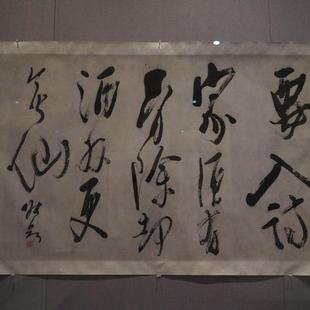 要入詩
家須有
骨除却
酒外更
無仙